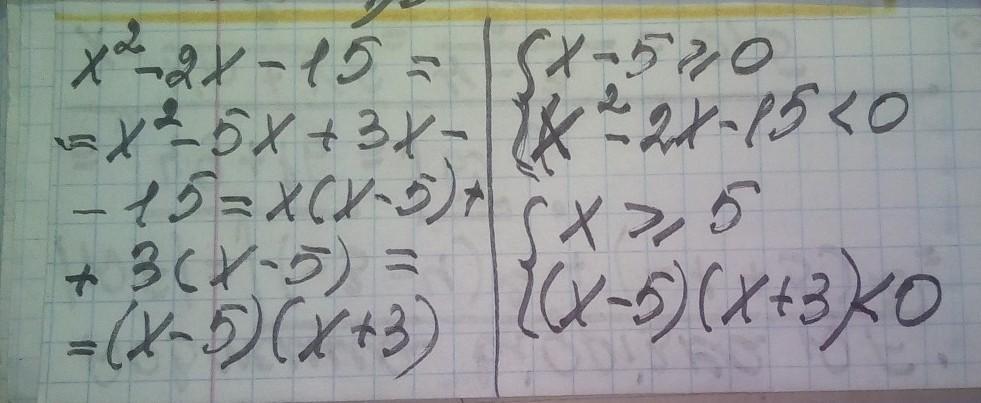 x² - 2x - 15 =
= x² - 5x + 3x -
- 15 = x(x-5) +
+ 3(x-5) =
= (x-5)(x+3)
{ x - 5 ⩾ 0
{ x² - 2x - 15 < 0
{ x ⩾ 5
{ (x-5)(x+3) < 0